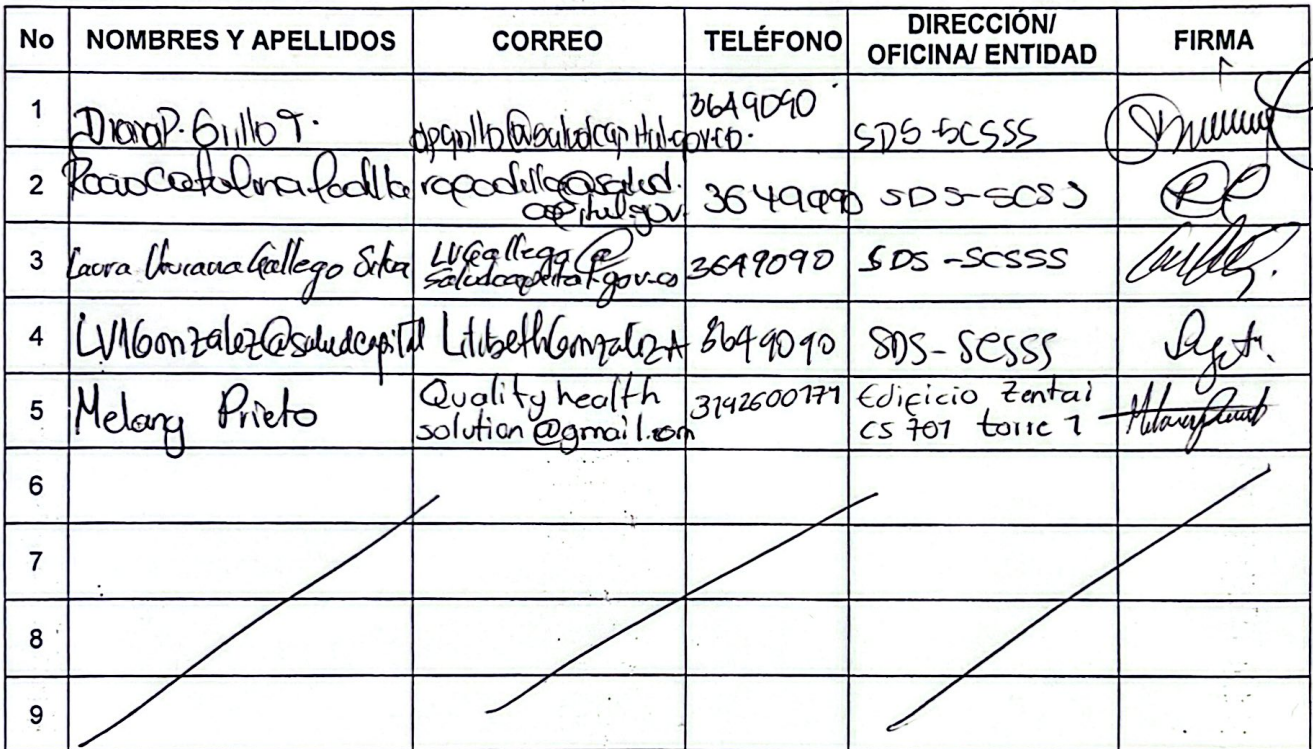 No NOMBRES Y APELLIDOS CORREO TELÉFONO DIRECCIÓN/ OFICINA/ ENTIDAD FIRMA
1 Diana P. Grillo T. dpgrillo@saludcapital.gov.co. 3649090 SDS-SCSSS
2 Rocio Catalina Padilla ropadilla@salud.
capital.gov. 3649090 SDS-SCSS
3 Laura Viviana Gallego Silva LVGallego@
saludcapital.gov.co 3649090 SDS-SCSSS
4 LV1Gonzalez@saludcapital Gonzalez A 3649090 SDS-SCSSS
5 Melany Prieto Quality health
solution@gmail.com Edicicio Zentai
CS 701 torre 1
6
7
8
9